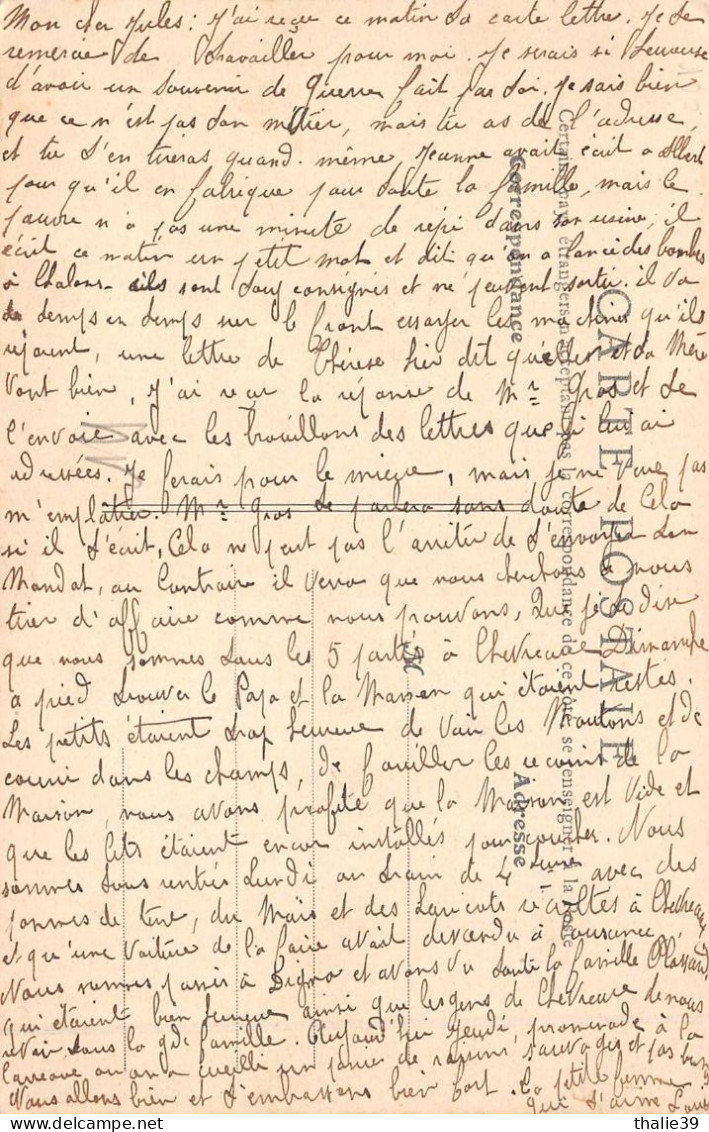 Mon cher Jules : J'ai reçu ce matin ta carte lettre. Je te
remercie de travailler pour moi. Je serais si heureuse
d'avoir un souvenir de guerre fait par toi. Je sais bien
que ce n'est pas ton métier, mais tu as de l'adresse,
et tu t'en tireras quand même, Jeanne avait écrit a Albert
pour qu'il en fabrique pour toute la famille, mais le
pauvre n'a pas une minute de repi dans son usine, il
écrit ce matin un petit mot et dit qu'on a lancé des bombes
à Chalons ils sont tous consignés et ne peuvent sortir. il va
de temps en temps sur le front essayer les machines qu'ils
réparent, une lettre de Thérèse hier dit qu'elle et sa Mère
vont bien, J'ai reçu la réponse de Mr Gros et te
l'envoie avec les brouillons des lettres que je lui ai
adressées. Je ferais pour le mieux, mais je ne veux pas
m'emplâtrer. Mr Gros te parlera sans doute de cela
si il t'écrit, Cela ne peut pas l'arrêter de t'envoyer ton
Mandat, au Contraire il verra que nous cherchons a nous
tirer d'affaire comme nous pouvons, Que je te dise
que nous sommes tous les 5 partis à Chevreaux Dimanche
a pied trouver le Papa et la Maman qui étaient restés.
Les petits étaient trop heureux de voir les Moutons et de
courir dans les champs, de fouiller les recoins de la
Maison, nous avons profité que la Maison est vide et
que les lits étaient encor installés pour coucher. Nous
sommes tous rentrés Lundi au train de 4 avec des
pommes de terre, du Maïs et des haricots récoltés à Chevreaux
et qu'une voiture de la foire avait descendu à Cousance.
Nous sommes passés à Digna et avons vu toute la famille
qui étaient bien heureux ainsi que les gens de Chevreaux de nous
voir tous la gde famille. Aujourd'hui Jeudi, promenade à la
ou on a cueilli un panier de raisins sauvages et pas
Nous allons bien et t'embrassons bien fort. La petite femme
qui t'aime
CARTE POSTALE
Certains pays étrangers n'acceptant pas la correspondance de ce côté, se renseigner à la Poste
Correspondance
Adresse
M
thalie39